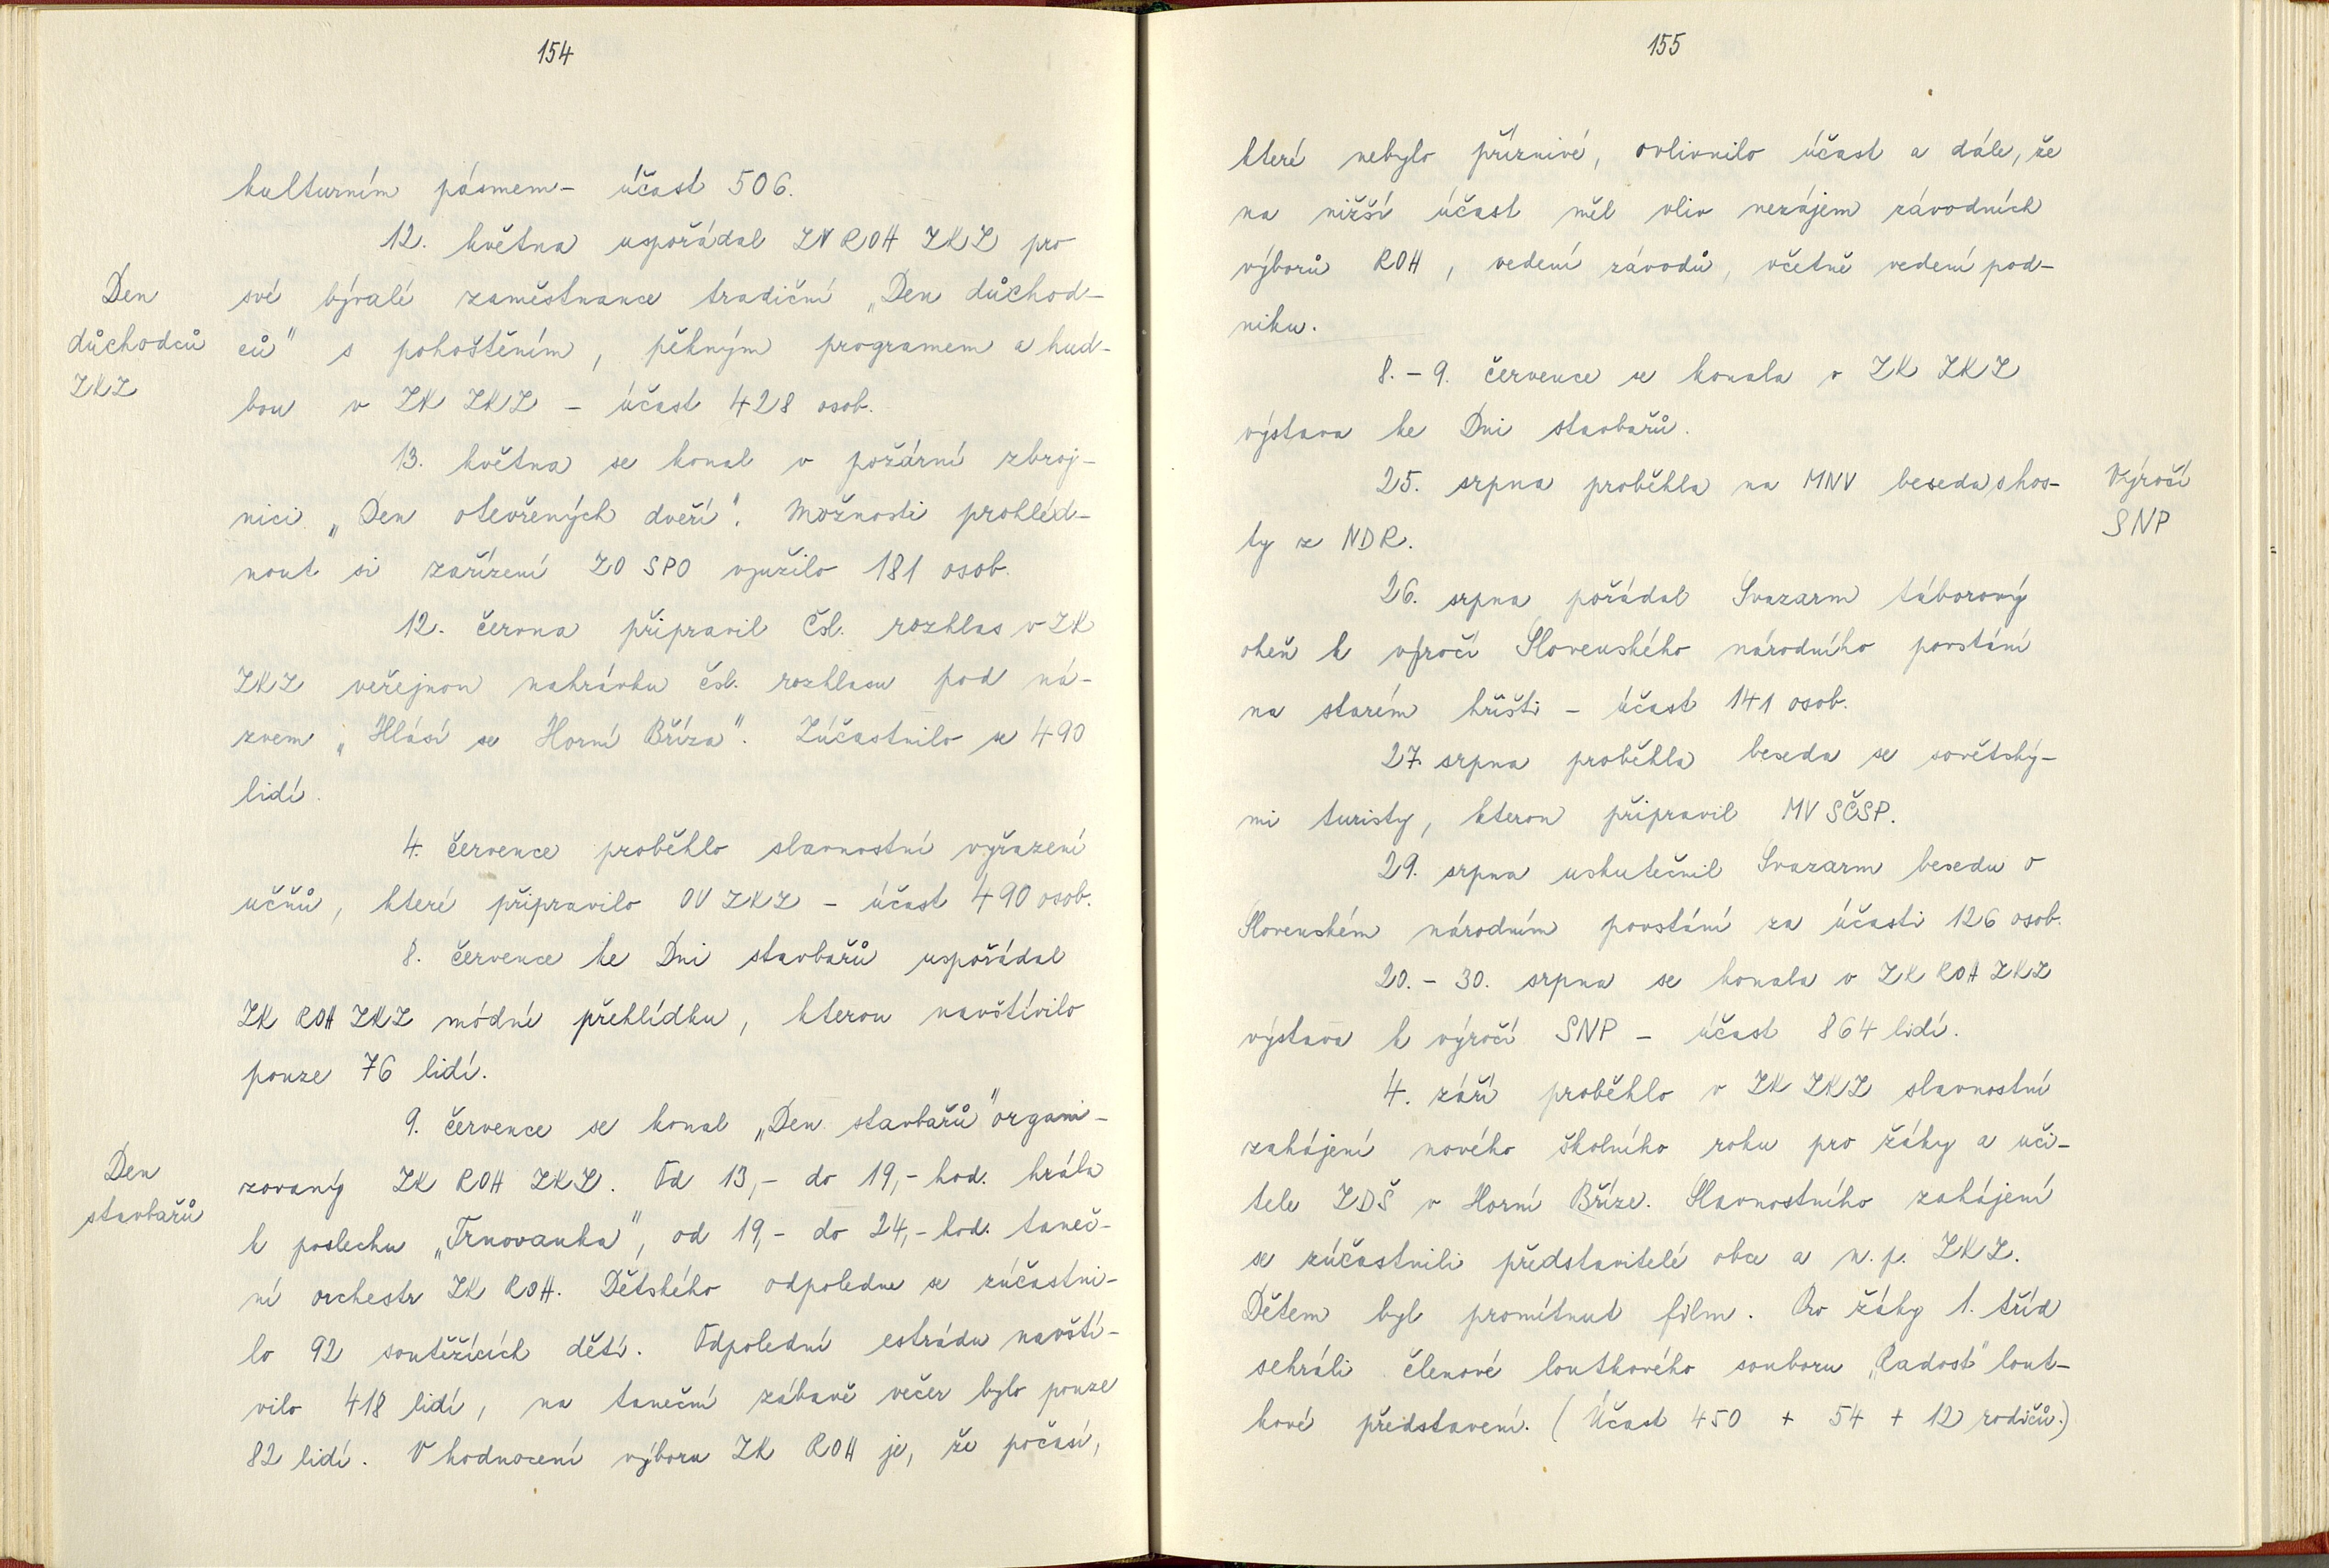 154
kulturním pásmem - účast 506.
12. května uspořádal ZV ROH ZKZ pro
Den
důchodců
ZKZ
své bývalé zaměstnance tradiční „Den důchod-
ců" s pohoštěním, pěkným programem a hud-
bou v ZK ZKZ - účast 428 osob.
13. května se konal v požární zbroj-
nici „Den otevřených dveří". Možnosti prohléd-
nout si zařízení ZO SPO využilo 181 osob.
12. června připravil Čsl. rozhlas v ZK
ZKZ veřejnou nahrávku čsl. rozhlasu pod ná-
zvem „Hlásí se Horní Bříza". Zúčastnilo se 490
lidí.
4. července proběhlo slavnostní vyřazení
učňů, které připravilo OU ZKZ - účast 490 osob.
8. července ke Dni stavbařů uspořádal
ZK ROH ZKZ módní přehlídku, kterou navštívilo
pouze 76 lidí.
9. července se konal „Den stavbařů" organi-
Den
stavbařů
zovaný ZK ROH ZKZ. Od 13,- do 19,- hod. hrála
k poslechu „Trnovanka", od 19,- do 24,- hod. taneč-
ní orchestr ZK ROH. Dětského odpoledne se zúčastni-
lo 92 soutěžících dětí. Odpolední estrádu navští-
vilo 418 lidí, na taneční zábavě večer bylo pouze
82 lidí. V hodnocení výboru ZK ROH je, že počasí,
155
které nebylo příznivé, ovlivnilo účast a dále, že
na nižší účast měl vliv nezájem závodních
výborů ROH, vedení závodů, včetně vedení pod-
niku.
8. - 9. července se konala v ZK ZKZ
výstava ke Dni stavbařů.
25. srpna proběhla na MNV beseda s hos-
ty z NDR.
Výročí
SNP
26. srpna pořádal Svazarm táborový
oheň k výročí Slovenského národního povstání
na starém hřišti - účast 141 osob.
27. srpna proběhla beseda se sovětský-
mi turisty, kterou připravil MV SČSP.
29. srpna uskutečnil Svazarm besedu o
Slovenském národním povstání za účasti 126 osob.
20. - 30. srpna se konala v ZK ROH ZKZ
výstava k výročí SNP - účast 864 lidí.
4. září proběhlo v ZK ZKZ slavnostní
zahájení nového školního roku pro žáky a uči-
tele ZDŠ v Horní Bříze. Slavnostního zahájení
se zúčastnili představitelé obce a n. p. ZKZ.
Dětem byl promítnut film. Pro žáky 1. tříd
sehráli členové loutkového souboru „Radost" lout-
kové představení. (Účast 450 + 54 + 12 rodičů.)